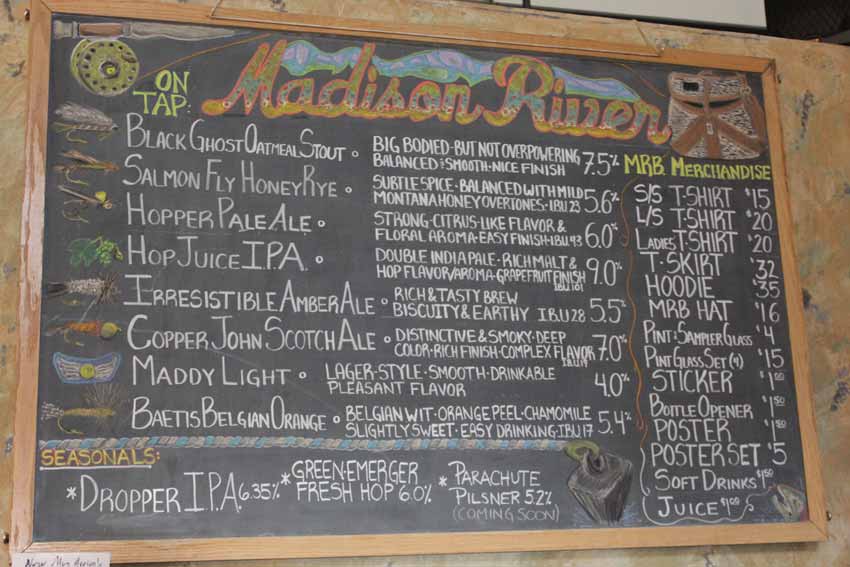 Madison River
ON
TAP:
BLACK GHOST OATMEAL STOUT • BIG BODIED • BUT NOT OVERPOWERING
BALANCED & SMOOTH • NICE FINISH 7.5%
SALMON FLY HONEY RYE • SUBTLE SPICE • BALANCED WITH MILD
MONTANA HONEY OVERTONES • IBU 23 5.6%
HOPPER PALE ALE • STRONG • CITRUS-LIKE FLAVOR &
FLORAL AROMA • EASY FINISH • IBU 43 6.0%
HOP JUICE I.P.A. • DOUBLE INDIA PALE • RICH MALT &
HOP FLAVOR/AROMA • GRAPEFRUIT FINISH 9.0%
IBU 101
IRRESISTIBLE AMBER ALE • RICH & TASTY BREW
BISCUITY & EARTHY IBU 28 5.5%
COPPER JOHN SCOTCH ALE • DISTINCTIVE & SMOKY • DEEP
COLOR • RICH FINISH • COMPLEX FLAVOR 7.0%
MADDY LIGHT • LAGER-STYLE • SMOOTH • DRINKABLE
PLEASANT FLAVOR 4.0%
BAETIS BELGIAN ORANGE • BELGIAN WIT • ORANGE PEEL • CHAMOMILE
SLIGHTLY SWEET • EASY DRINKING • IBU 17 5.4%
SEASONALS:
*DROPPER I.P.A. 6.35%
*GREEN-EMERGER
FRESH HOP 6.0%
*PARACHUTE
PILSNER 5.2%
(COMING SOON)
MRB. MERCHANDISE
S/S T-SHIRT $15
L/S T-SHIRT $20
LADIES T-SHIRT $20
T-SKIRT $32
HOODIE $35
MRB HAT $16
PINT & SAMPLER GLASS $4
PINT GLASS SET (4) $15
STICKER $1.00
BOTTLE OPENER $1.50
POSTER $1.50
POSTER SET $5
SOFT DRINKS $1.50
JUICE $1.00